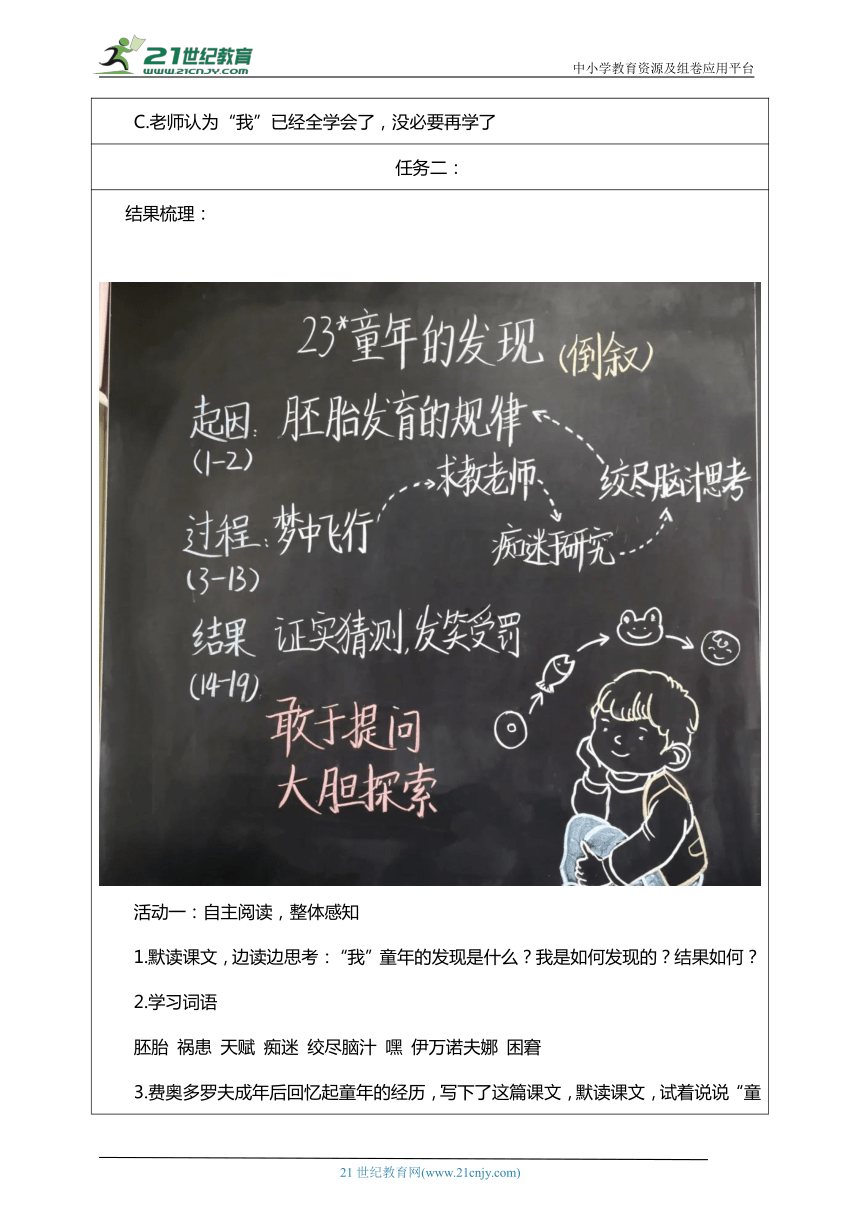 21世纪教育
WWW.21CNJY.COM
中小学教育资源及组卷应用平台
C.老师认为“我”已经全学会了，没必要再学了
任务二：
结果梳理：
23*童年的发现（倒叙）
起因：胚胎发育的规律
(1-2)
求教老师
绞尽脑汁思考
过程：梦中飞行
痴迷于研究
(3-13)
结果 证实猜测,发笑受罚
(14-19)
敢于提问
大胆探索
活动一：自主阅读，整体感知
1.默读课文，边读边思考：“我”童年的发现是什么？我是如何发现的？结果如何？
2.学习词语
胚胎 祸患 天赋 痴迷 绞尽脑汁 嘿 伊万诺夫娜 困窘
3.费奥多罗夫成年后回忆起童年的经历，写下了这篇课文，默读课文，试着说说“童
21世纪教育网(www.21cnjy.com)